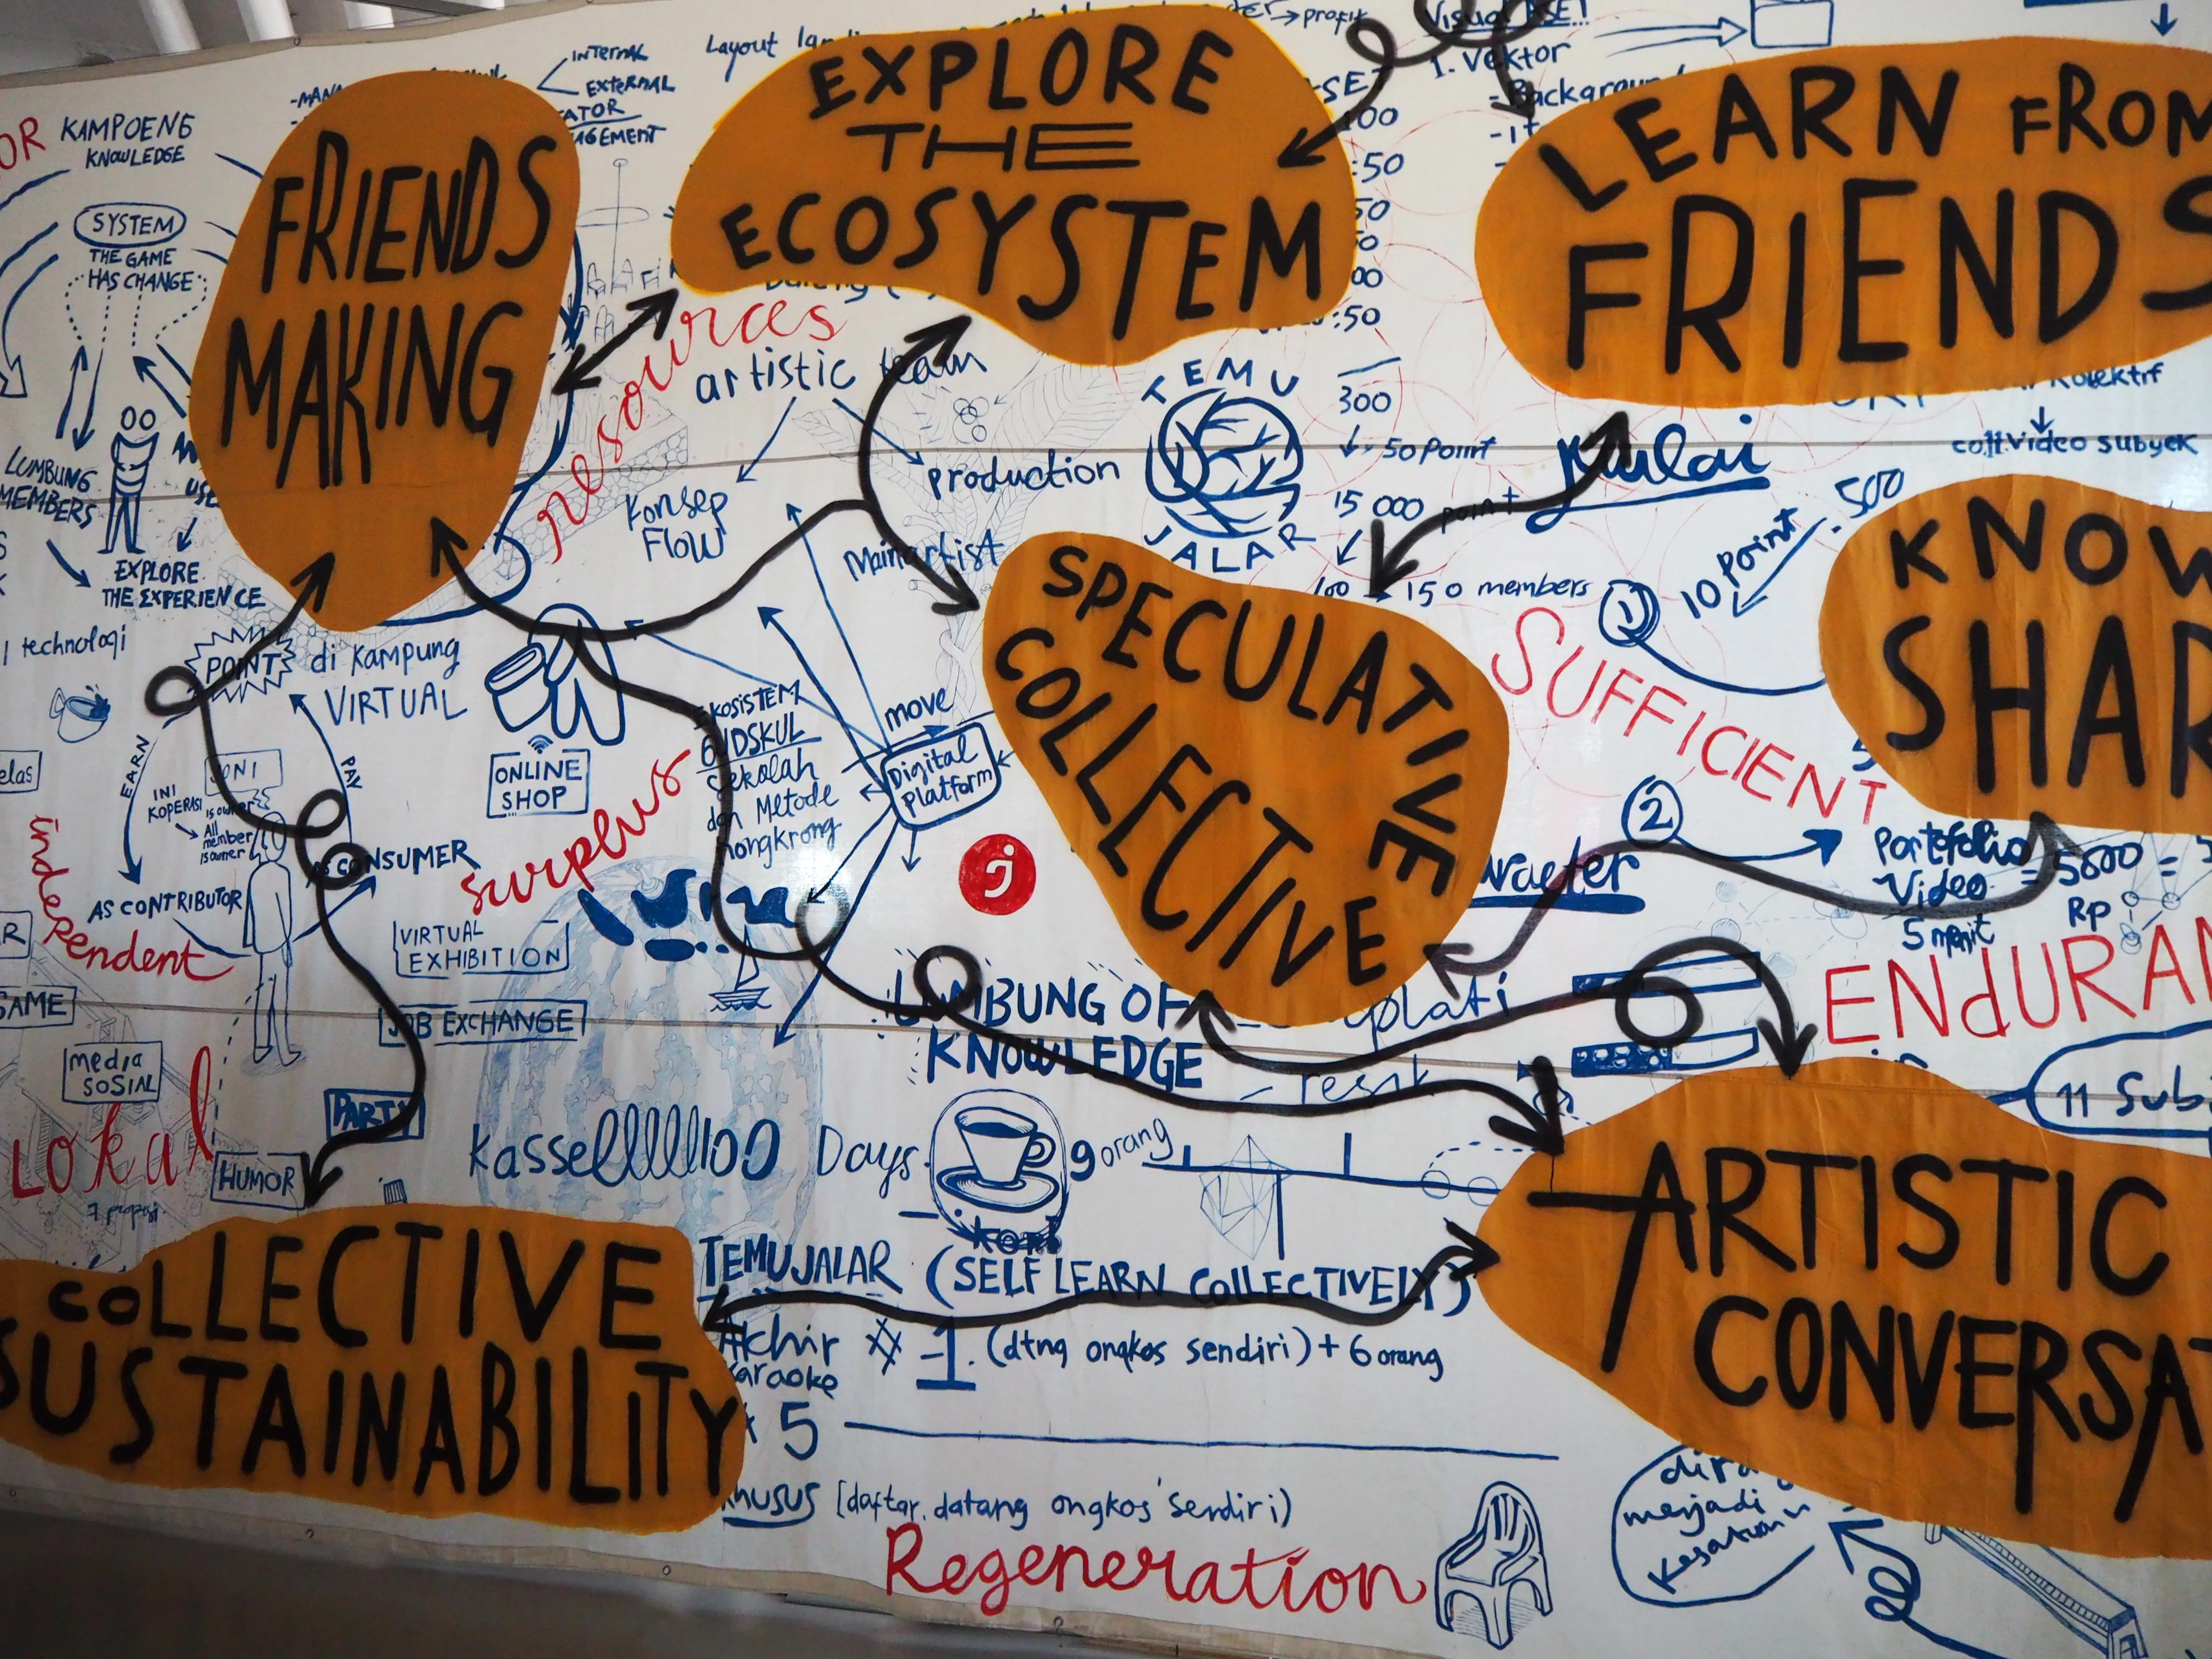 FRIENDS
MAKING
EXPLORE
THE
ECOSYSTEM
LEARN FROM
FRIENDS
SPECULATIVE
COLLECTIVE
KNOW
SHAR
COLLECTIVE
SUSTAINABILITY
ARTISTIC
CONVERSAT
OR
KAMPOENG
KNOWLEDGE
SYSTEM
THE GAME
HAS CHANGE
LUMBUNG
MEMBERS
EXPLORE
THE EXPERIENCE
technologi
INTERNAL
EXTERNAL
ATOR
AGEMENT
Layout
profit
Visual ASET
1. Vektor
- Background
100
:50
:50
resources
artistic team
production
Konsep
Flow
Main artist
TEMU
JALAR
300
50 Point
15 000 point
100
150 members
Mulai
Kolektif
coll.video subyek
500
10 Point
1
SUFFICIENT
2
Portofolio
Video
5 menit
= 5000 =
Rp
ENDURAN
11 Sub
POINT
di Kampung
VIRTUAL
EARN
PAY
INI
KOPERASI
is owner
All
member
is owner
AS CONSUMER
AS CONTRIBUTOR
independent
elas
R
SAME
media
SOSIAL
Lokal
PARTY
HUMOR
ONLINE
SHOP
surplus
EKOSISTEM
GUDSKUL
Sekolah
dan Metode
nongkrong
move
Digital
platform
VIRTUAL
EXHIBITION
JOB EXCHANGE
LUMBUNG OF
KNOWLEDGE
Kassellllllll100 Days
9 orang
TEMUJALAR (SELF LEARN COLLECTIVELY)
Akhir # -1. (dtng ongkos sendiri) + 6 orang
Karaoke
5
Khusus [daftar, datang ongkos sendiri)
Regeneration
menjadi
Kesatuan